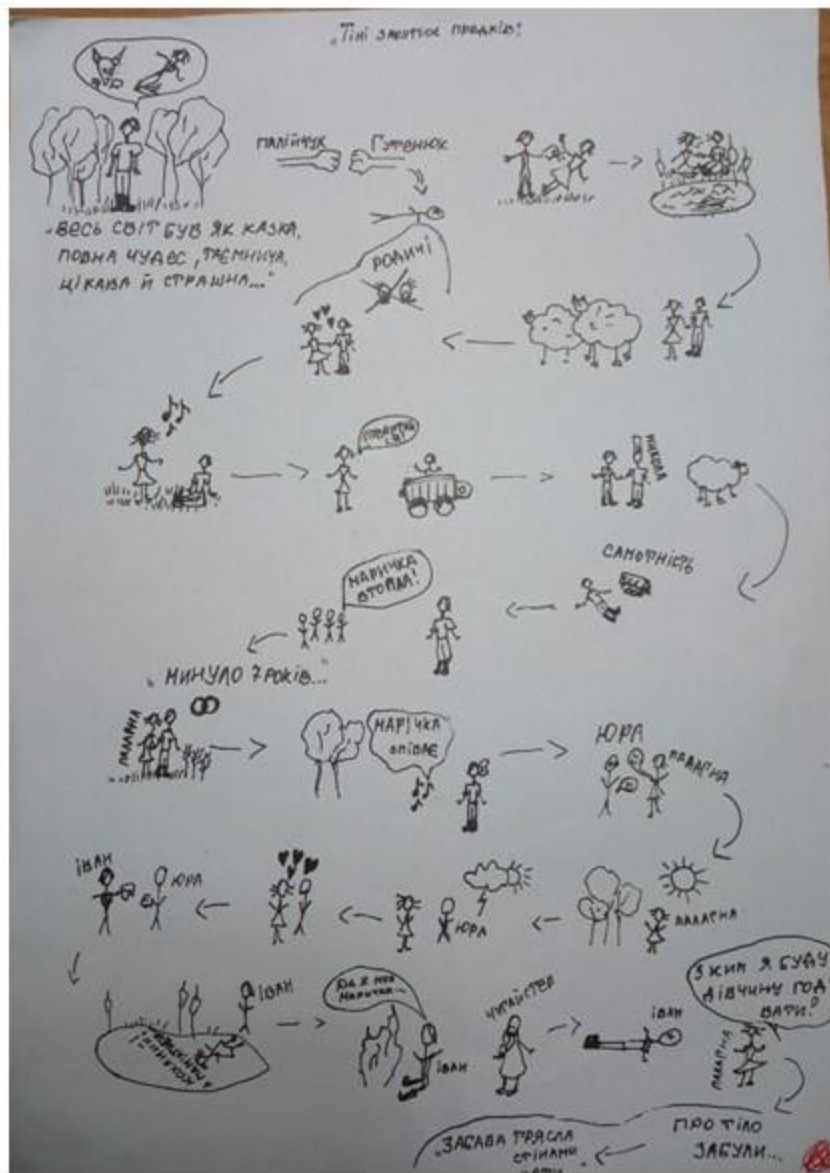 „Тіні забутих предків"
Палійчук
Гутенюк
„Весь світ був як казка,
повна чудес, таємнича,
цікава й страшна..."
Родичі
Микола
Самотність
Маричка
втопла!
„Минуло 7 років..."
Палагна
Марічка
співає
Юра
Палагна
Іван
Юра
Юра
Палагна
Іван
Де я моя
Маричка...
Іван
Чугайстер
Іван
З ким я буду
дівчину год
вати?
Палагна
Про тіло
забули...
„Забава трясла
стінами